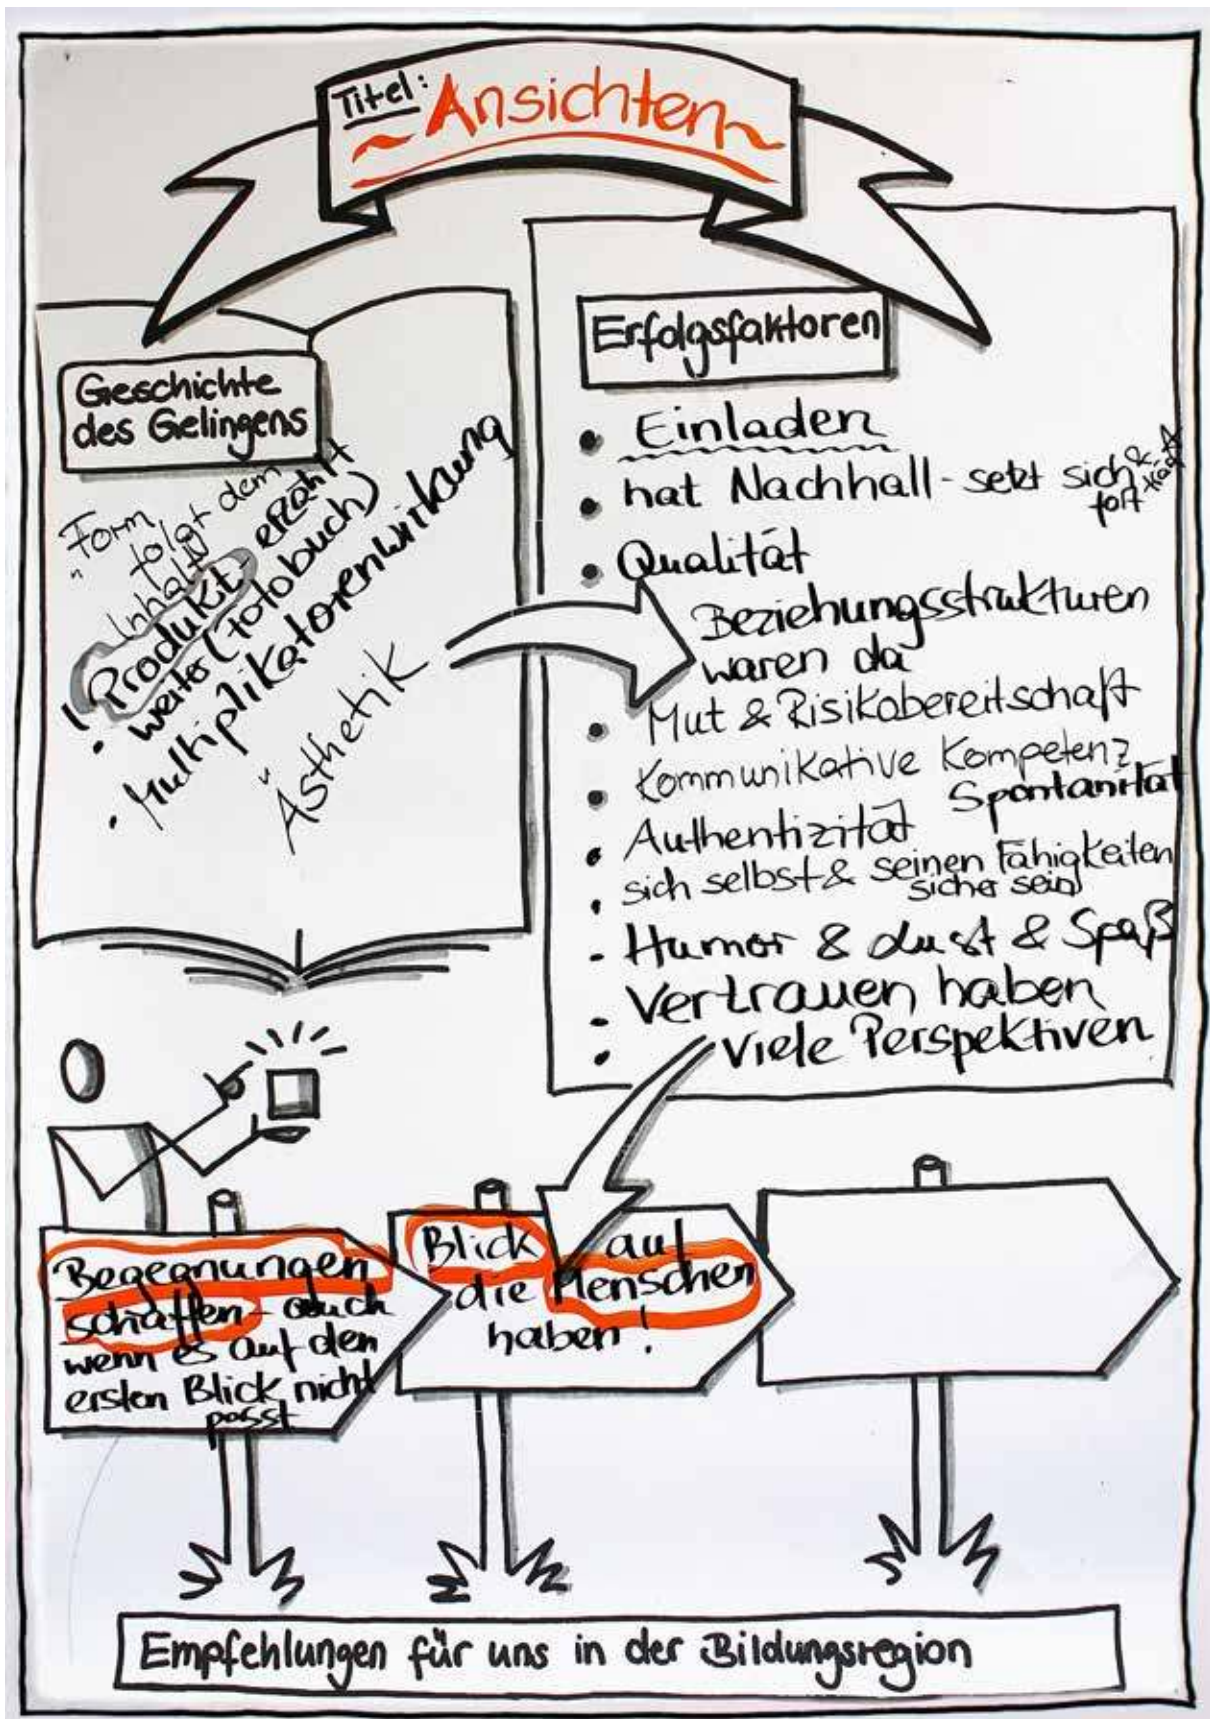 Titel: Ansichten
Geschichte
des Gelingens
"Form
folgt dem
Inhalt"
! Produkt - erzählt
• weiter (Fotobuch)
• Multiplikatorenwirkung
"Ästhetik
Erfolgsfaktoren
• Einladen
• hat Nachhall - setzt sich
fort & trägt
• Qualität
Beziehungsstrukturen
waren da
• Mut & Risikobereitschaft
• Kommunikative Kompetenz
Spontanität
• Authentizität
• sich selbst & seinen Fähigkeiten
sicher sein
• Humor & Lust & Spaß
• Vertrauen haben
• Viele Perspektiven
Begegnungen
schaffen - auch
wenn es auf den
ersten Blick nicht
passt
Blick auf
die Menschen
haben!
Empfehlungen für uns in der Bildungsregion